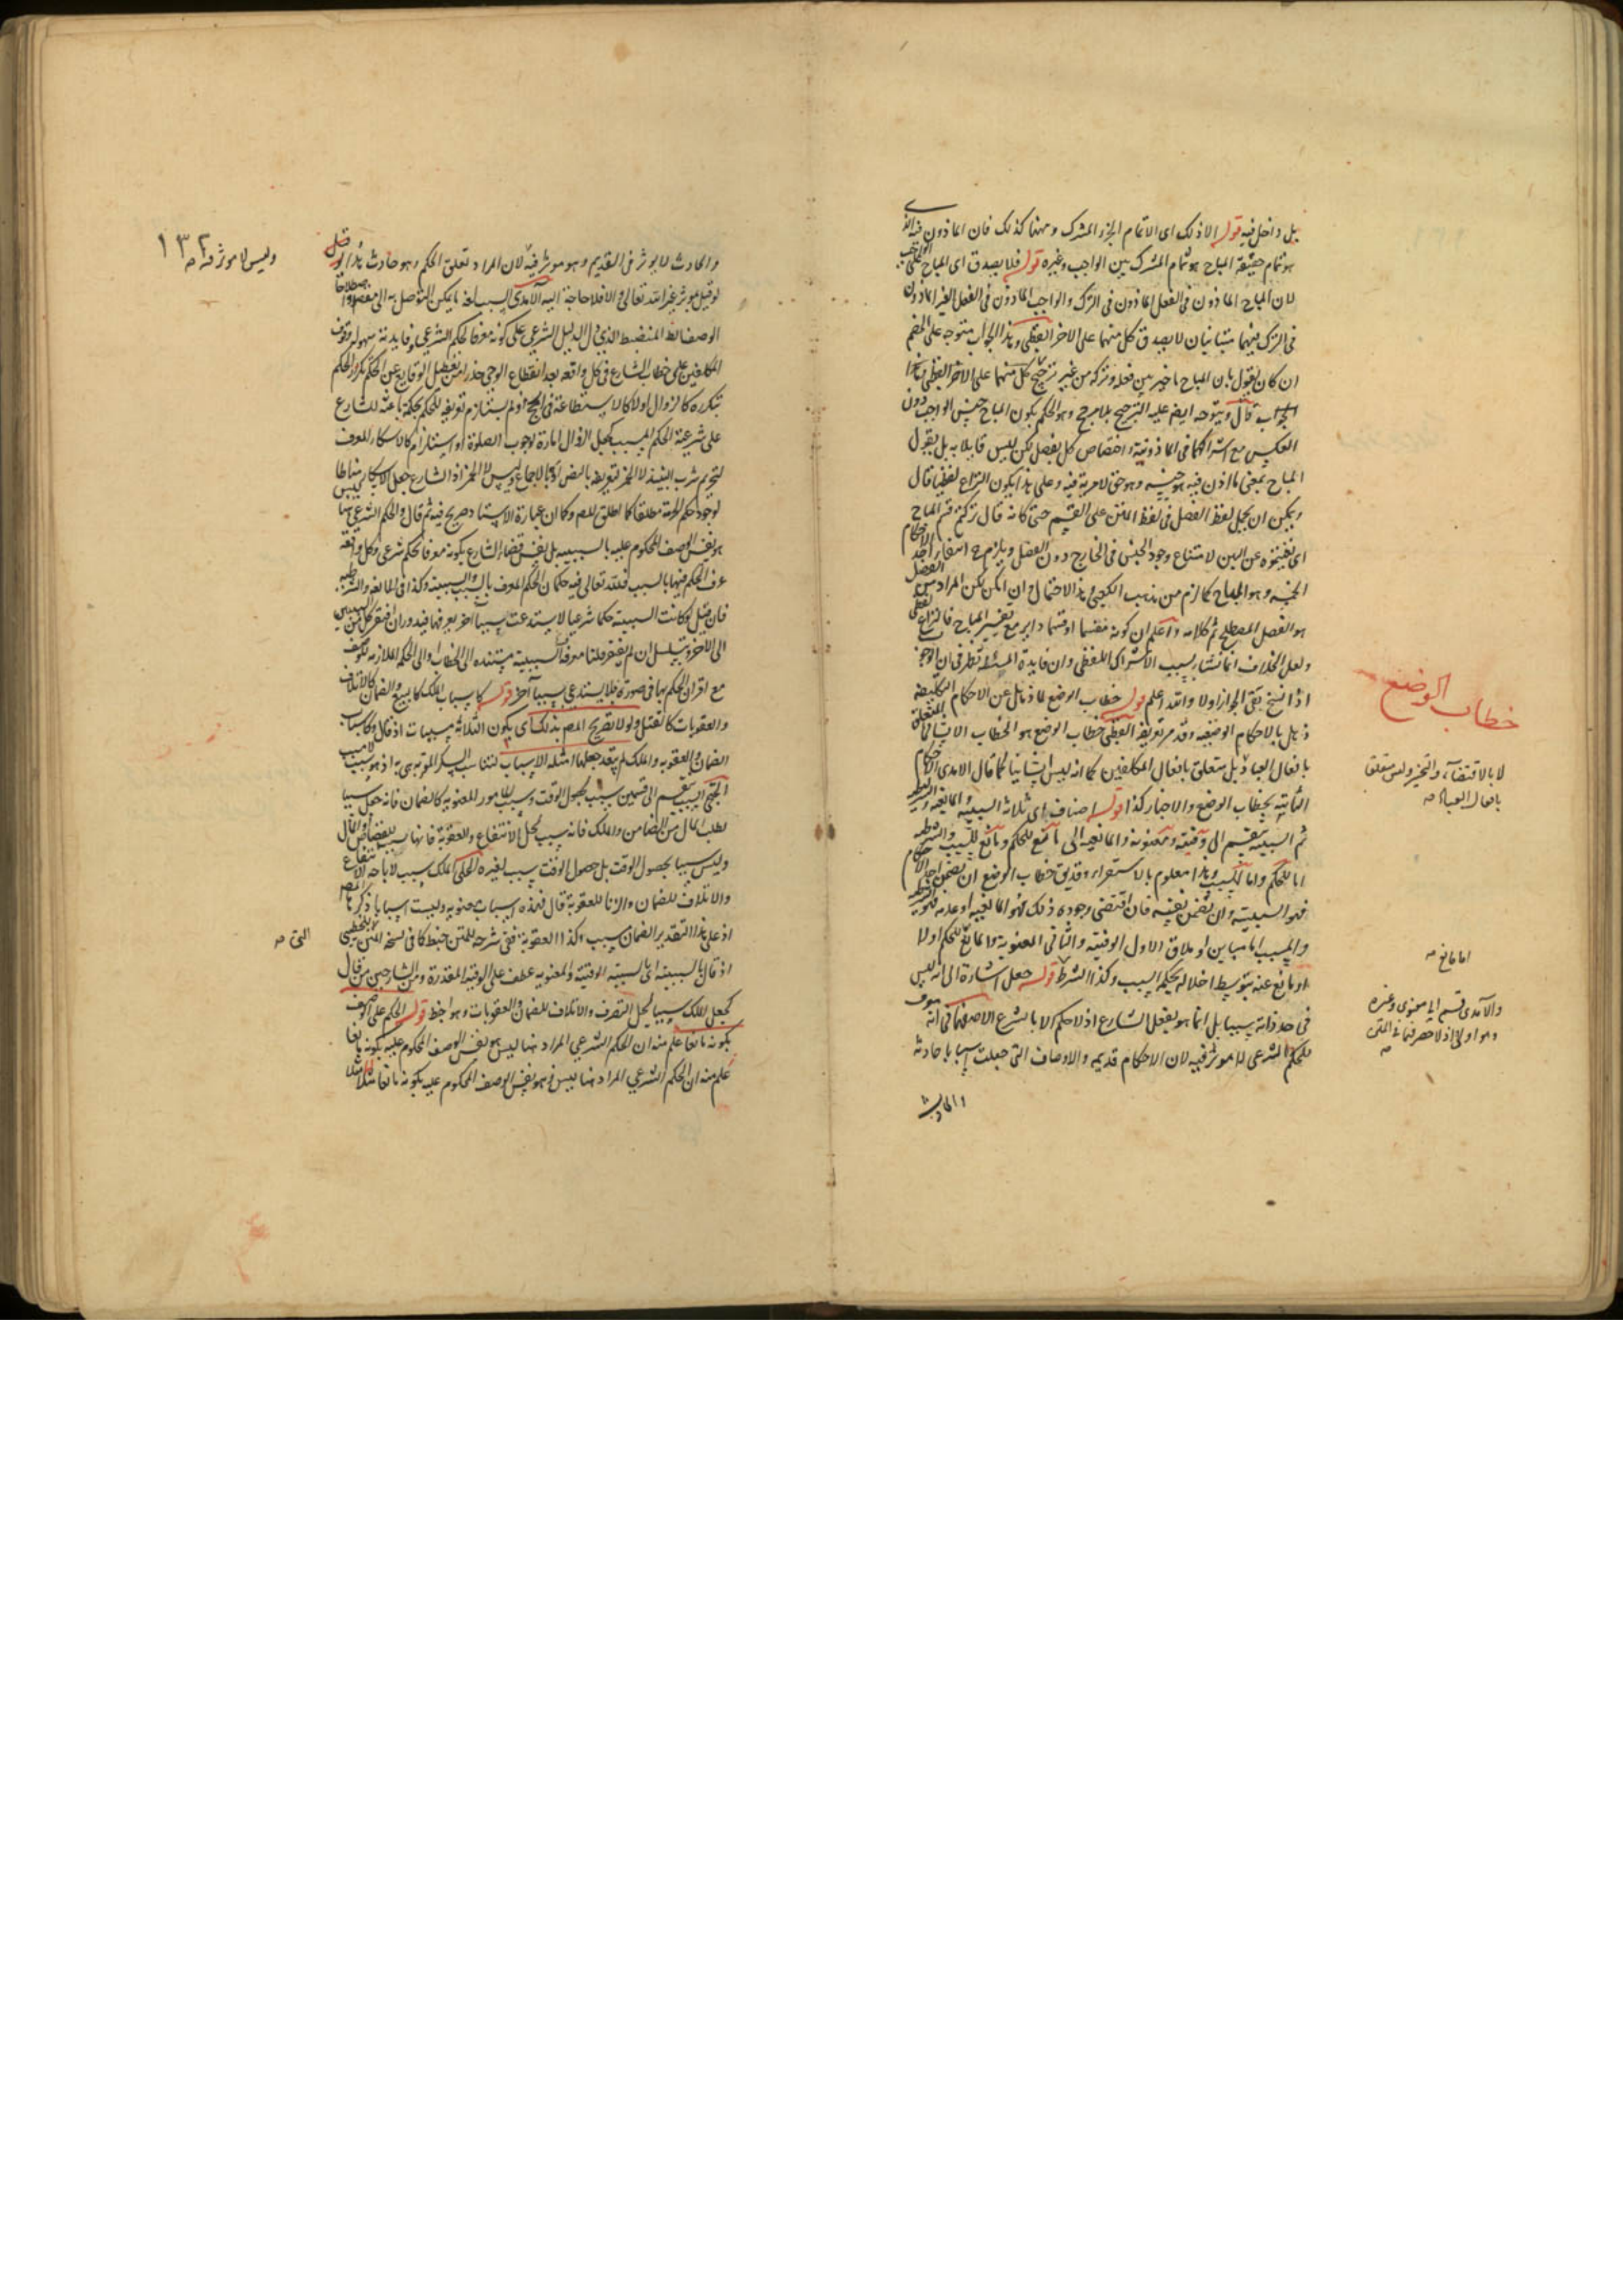 بل داخل فيه قوله الا ذلك اى الا تمام الجزء المشترك وههنا كذلك فان الماذون فيه الذى
هو تمام حقيقة المباح هو تمام المشترك بين الواجب وغيره قوله فلا يصدق اى المباح على الواجب
لان المباح الماذون فى الفعل الماذون فى الترك والواجب الماذون فى الفعل الغير الماذون
فى الترك فهما متباينان لا يصدق كل منهما على الاخر القطبى وهذا الجواب متوجه على الخصم
ان كان يقول بان المباح ما خير بين فعله وتركه من غير ترجيح كل منهما على الاخر القطبى
الجواب قال ويتوجه ايضا عليه الترجيح بلا مرجح وهو الحكم بكون المباح جنس الواجب دون
العكس مع اشتراكهما فى الماذونية واختصاص كل بفصل لكن ليس قايلا به بل يقول
المباح بمعنى ما اذن فيه هو جنسه وهو حق لا مرية فيه وعلى هذا يكون النزاع لفظيا قال
ويمكن ان يحمل لفظ الفصل فى لفظ المتن على القسيم حتى كانه قال تركتم قسم المباح
اى نفيتموه عن البين لامتناع وجود الجنس فى الخارج دون الفصل ويلزم ح انتفاء احد الاحكام
الخمسة وهو المباح كما لزم من مذهب الكعبى هذا الاحتمال وان امكن لكن المراد من الفصل
هو الفصل المصطلح ثم كلامه واعلم ان كونه مقسما او قسما داير مع تفسير المباح فالنزاع لفظى
ولعل الخلاف انما نشا بسبب الاشتراك اللفظى وان فايدة المسئلة تظهر فى ان الوجوب
اذا نسخ بقى الجواز اولا والله اعلم قوله خطاب الوضع لما ذهل عن الاحكام التكليفية
ذهل بالاحكام الوضعية وقد مر تعريفه القطبى خطاب الوضع هو الخطاب الانشائى المتعلق
بافعال العباد بل متعلق بافعال المكلفين كما انه ليس انشائيا كما قال الامدى الاحكام
الثابتة بخطاب الوضع والاخبار كذا قوله اصناف اى ثلاثة السببية والمانعية والشرطية
ثم السببية ينقسم الى وقتية ومعنوية والمانعية الى مانع للحكم ومانع للسبب والشرطية
اما للحكم واما للسبب وهذا معلوم بالاستقراء وقد يق خطاب الوضع ان تضمن احد الاحكام
فهو السببية وان تضمن نفيه فان اقتضى وجوده ذلك فهو المانعية او عدمه فهو الشرطية
والسبب اما مباين او ملاق الاول الوقتية والثانى المعنوية والمانع للحكم اولا
او مانع عنه بتوسط اخلاله بحكمة السبب وكذا الشرط قوله جعل اشارة الى انه ليس
فى حد ذاته سببا بل انما هو بفعل الشارع اذ لا حكم الا بالشرع الاصفهانى انه معرف
للحكم الشرعى لا موثر فيه لان الاحكام قديمه والاوصاف التى جعلت اسبابا حادثة
والحادث
خطاب الوضع
لا بالاقتضاء والتخيير وليس متعلقا
بافعال العباد صح
اما مانع صح
والآمدى قسم الى معنوى وغيره
وهو اولى اذ لا حصر لهما فى المتن
صح
١٣٢
وليس لا موثر فيه صح
والحادث لا يوثر فى القديم وهو موثر فيه لان المراد تعلق الحكم وهو حادث هذا قيل
لو قيل موثر غير الله تعالى والا فلا حاجة اليه الآمدى السبب لغة ما يمكن التوصل به الى مقصود واصطلاحا
الوصف الظ المنضبط الذى دل الدليل الشرعى على كونه معرفا لحكم الشرعى وفايدته سهولة وقوف
المكلفين على خطاب الشارع فى كل واقعة بعد انقطاع الوحى حذرا من تعطل الوقايع عن الحكم تكرر الحكم
بتكرره كالزوال اولا كالاستطاعة فى الحج او لم يستلزم تعريفه للحكم حكمة باعثة للشارع
على شرعية الحكم المسبب كجعل الزوال امارة لوجوب الصلوة او استلزام كالاسكار المعرف
لتحريم شرب النبيذ لا الخمر لتعريفه بالنص او بالاجماع وليس لا الخمر اذ الشارع جعل الاسكار مناطا
لوجود حكم الحرمة مطلقا كما اطلق المص وكما ان عبارة الاستاد صريح فيه ثم قال والحكم الشرعى ههنا ليس
هو نفس الوصف المحكوم عليه بالسببية بل نفس قضاء الشارع بكونه معرفا لحكم شرعى وكل واقعة
عرف الحكم فيها بالسبب فلله تعالى فيه حكمان الحكم المعرف بالسبب والسببية وكذا فى المانعية والشرطية
فان قيل لو كانت السببية حكما شرعيا لاستدعت سببا اخر يعرفها فيدور ان افتقر كل من السببين
الى الاخر ويتسلسل ان لم يفتقر قلنا معرفة السببية مستنده الى الخطاب او الى الحكمة الملازمه للوصف
مع اقتران الحكم بها فى صورة فلا يستدعى سببا آخر قوله كاسباب الملك كالبيع والضمان كالاتلاف
والعقوبات كالقتل ولولا تصريح المص بذلك اى بكون الثلاثة مسببات اذ قال وكاسباب
الضمان والعقوبه والملك لم يبعد جعلها امثلة الاسباب لتناسب السكر الموتر هى به اذ هو سبب لا مسبب
الخنجى السبب ينقسم الى قسمين سبب لحصول الوقت وسبب لامور للمعنوية كالضمان فانه جعل سببا
لطلب المال من الضامن والملك فانه سبب لحل الانتفاع والعقوبة فانها سبب للقصاص والمال
وليس سببا بحصول الوقت بل حصول الوقت سبب لغيره الحلى الملك سبب لاباحة الانتفاع
والاتلاف للضمان والزنا للعقوبة قال فهذه اسباب معنوية وليست اسبابا ذكر المص
اذ على هذا التقدير الضمان سبب وكذا العقوبة ففى شرحه للمتن خبط كما فى نسخة المتن للخطيبى
اذ قال بالسببية اى بالسببية الوقتية والمعنوية عطف على الوقتية المقدرة ومن الشارحين من قال
كجعل الملك سببا لحل التصرف والاتلاف للضمان والعقوبات وهو اخبط قوله الحكم على الوصف
بكونه مانعا علم منه ان الحكم الشرعى المراد ههنا ليس هو نفس الوصف المحكوم عليه بكونه مانعا
علم منه ان الحكم الشرعى المراد ههنا ليس هو نفس الوصف المحكوم عليه بكونه مانعا مثلا
المتن صح